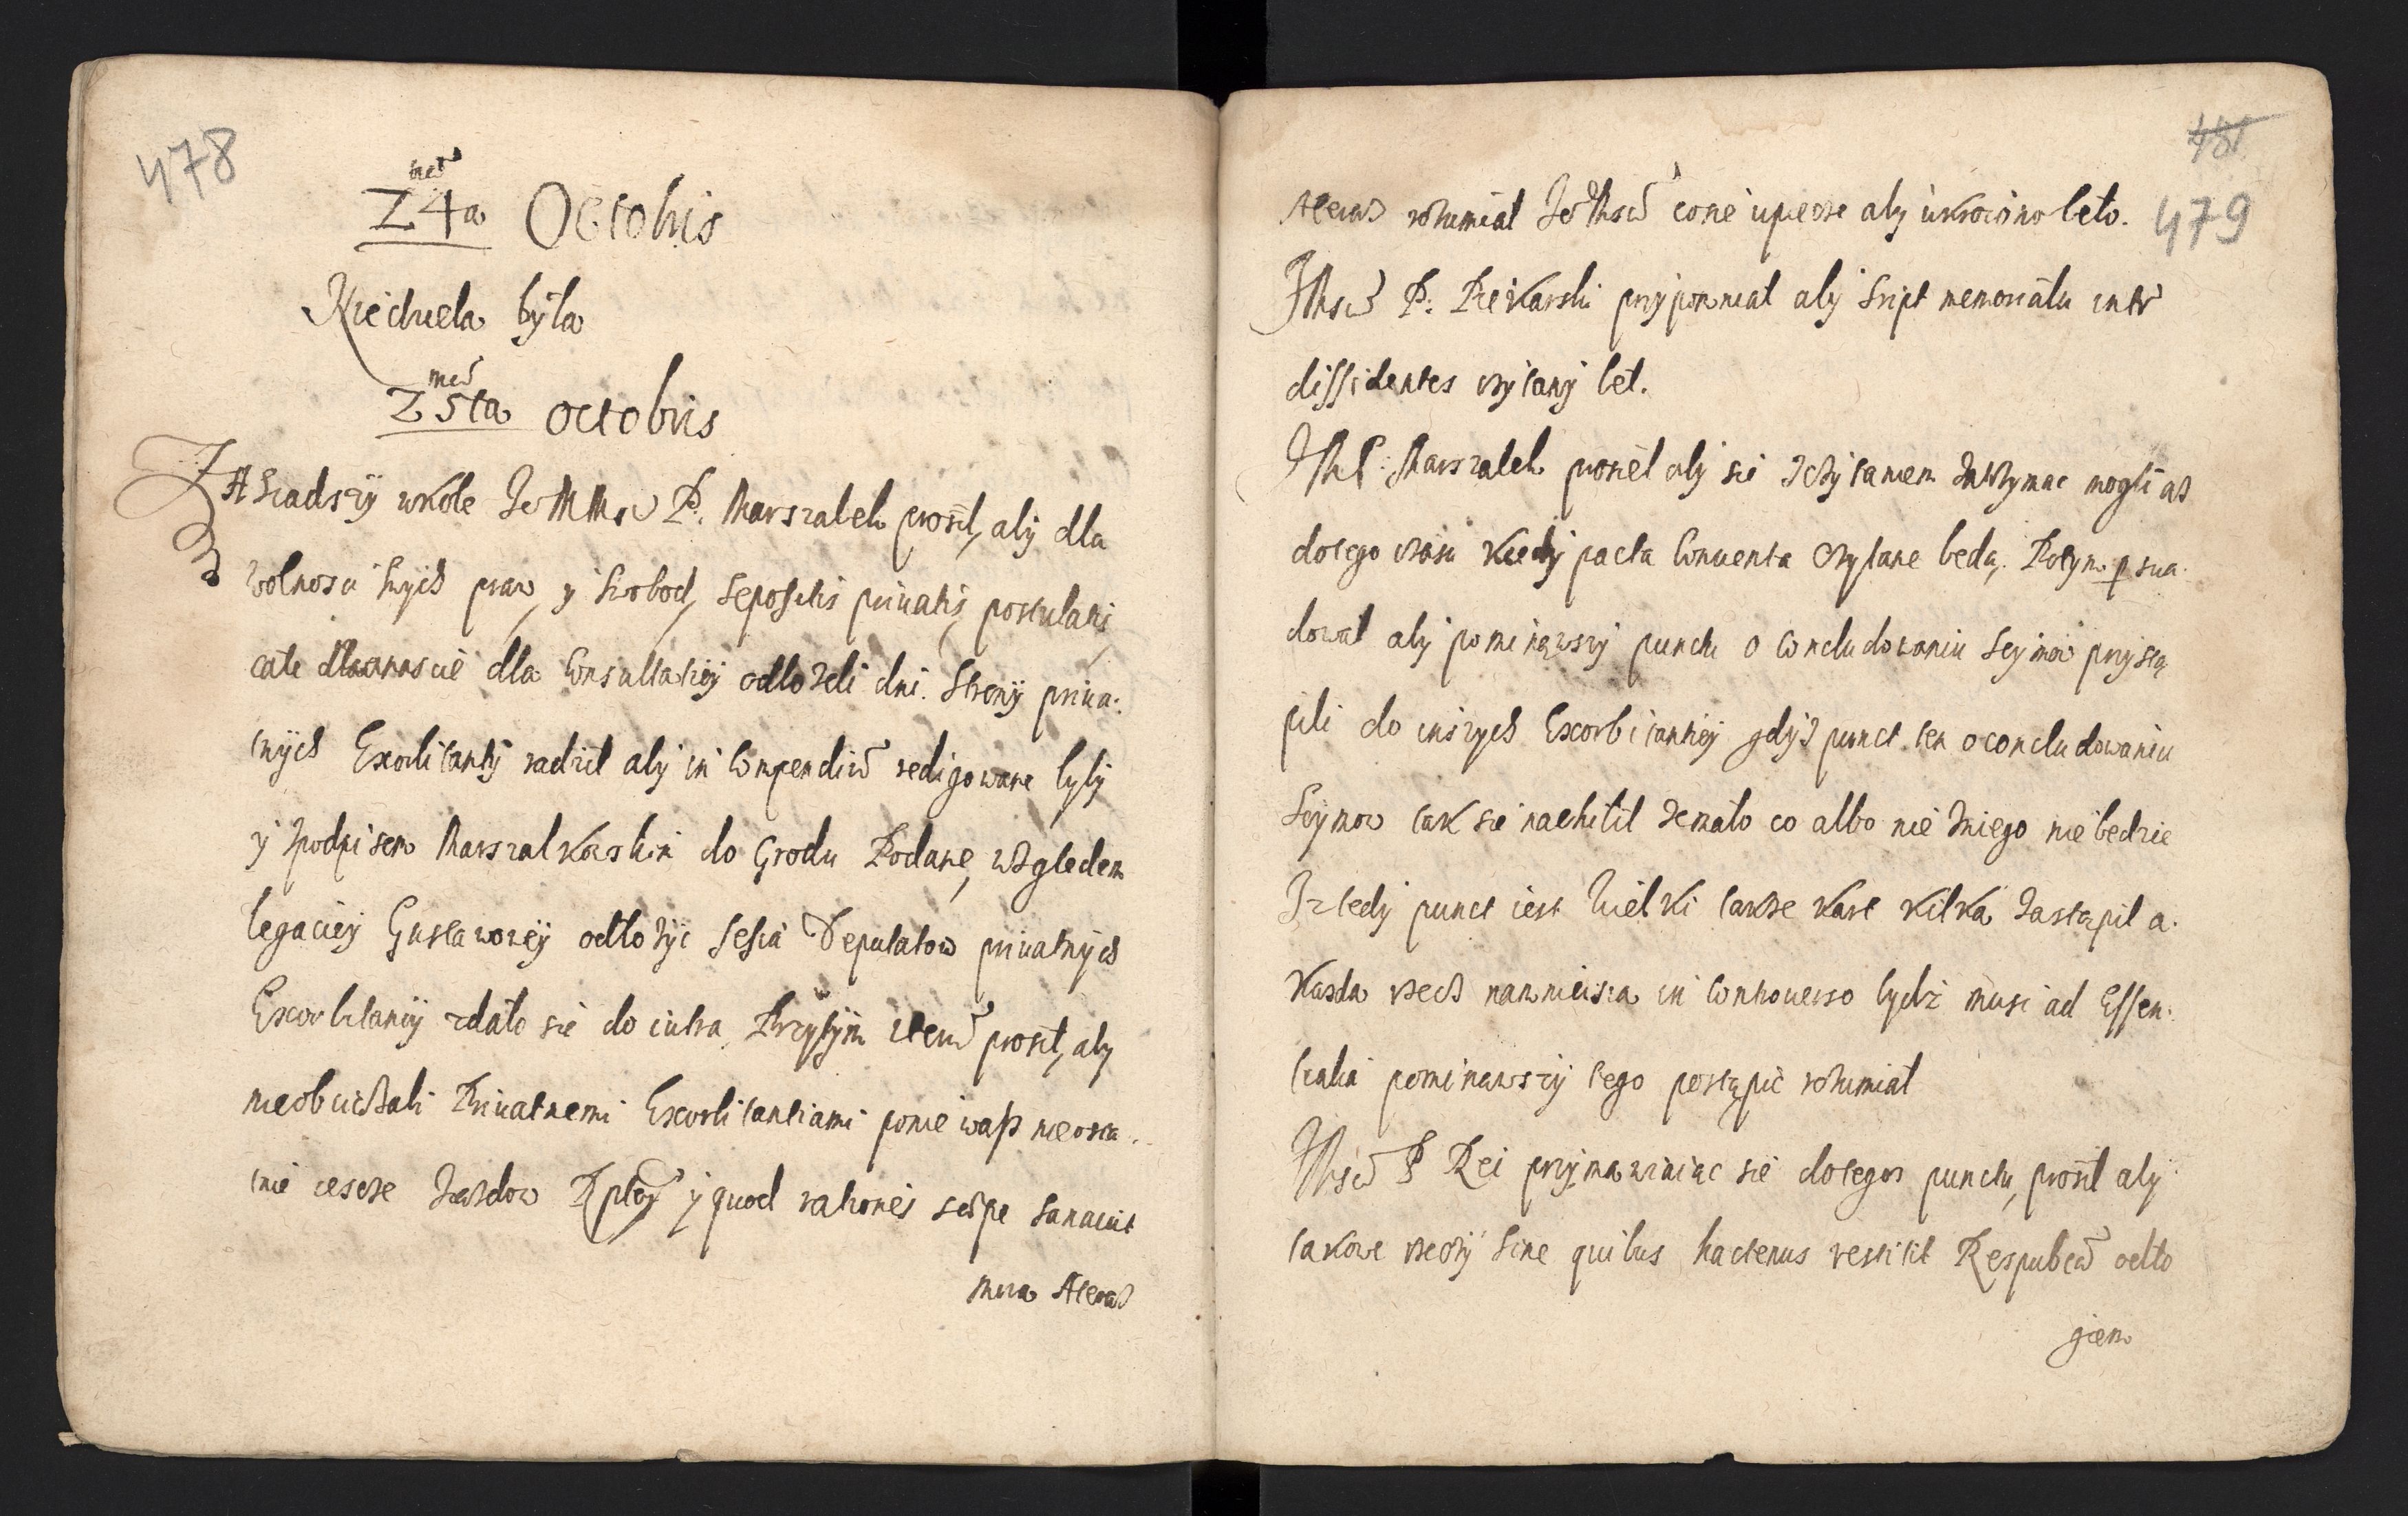 478
24a Octobris
Niedziela była
25ta octobris
Zasiadszy wkole Je Mhsc P. Marszalek prosil, aby dla
wolnosci swych praw, y swobod, sepositis priuatis postulatis
cale dla consultatiey odlozeli dni. Strony priua:
tnych Exorbitantij radzil aby in Compendiu redigowane byly
y spodpisem Marszalkowskim do Grodu Podane, wzgledem
legaciey Gustawowey odlozyc sesia Deputatow priuatnych
Exorbitanciy zdało sie do iutra, Przytym prosil, aby
nieobciazali Priuatnemi Exorbitantiami poniewasz
tnie iescze Rptey y quod rationes saepe
Ateraz
481
479
Ateraz rozumial Je Mhsc aby ukrocono beło.
JMsc P. Piekarski przypomnial aby script memorialu inter
dissidentes czytany beł.
JM P. Marszalek prosiel aby sie sczytaniem zatrzymac mogli az
dotego czasu kiedy pacta Conuenta czytane beda, Potym p sua:
dowal aby pominąwszy punctu o concludowaniu seymow przystą
pili do inszych Exorbitantiey gdyz punct ten oconcludowaniu
Seymow tak sie nachilil zemało co albo nic zniego nie bedzie
Iz tedy punct iest wielki takze kart kilka zastąpil a
kazda rzecz namnieisza in Controuerso bydz musi ad Essen:
tialia pominawszy tego postąpic rozumial
JMsc P Rei przymawiaiac sie dotegos punctu, prosil aby
takowe rzeczy sine quibus hactenus restitit Respubca odło
giem